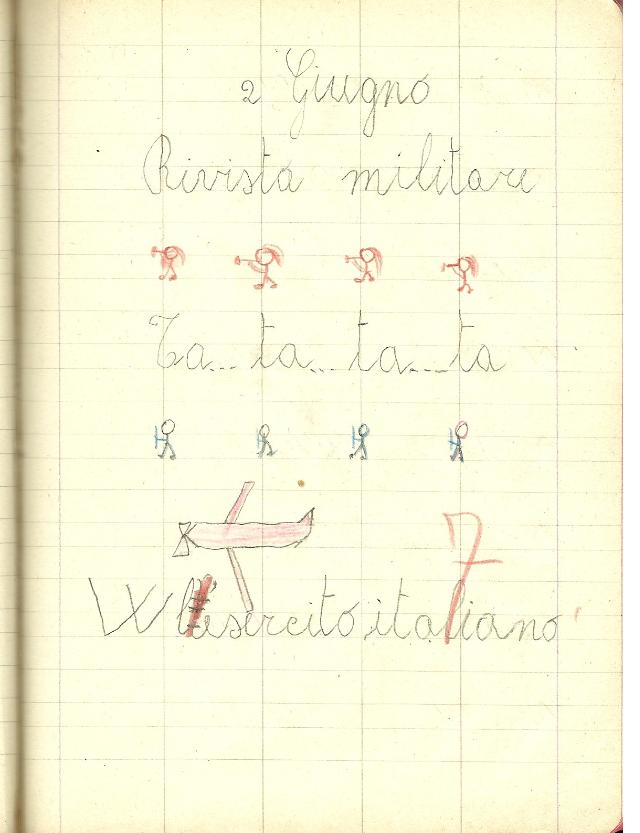 2 Giugno
Rivista militare
Ta... ta... ta.... ta
7
W l'esercito italiano